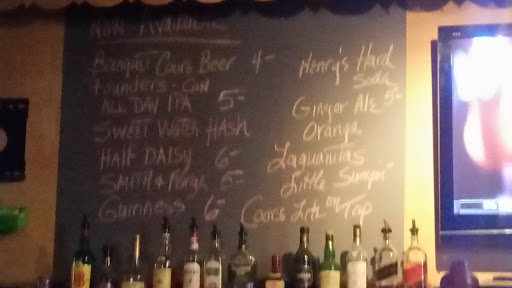 NOW Available
Banquet Coors Beer 4-
Founders - Can
ALL DAY IPA 5-
SWEET Water HASH
HALF DAISY 6-
Smith & Forge 5-
Guinness 6-
Henry's Hard
Soda
Ginger Ale 5-
Orange
Laguanitas
Little Sumpin"
Coors Lite on Tap